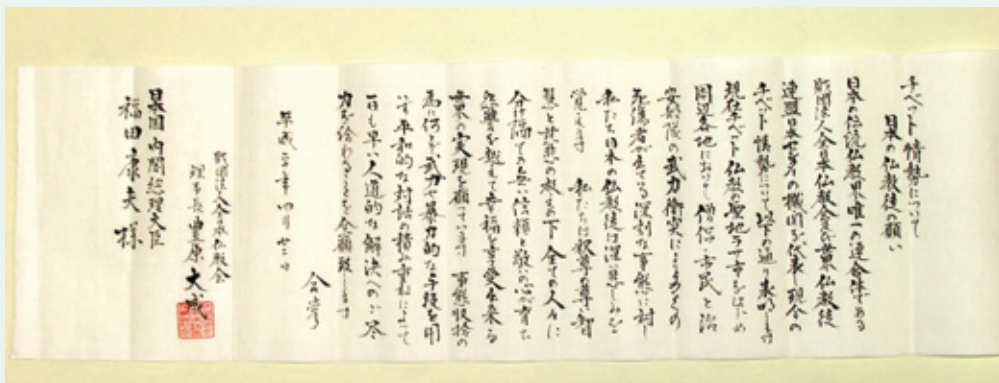 チベット情勢について
日本の仏教徒の願い
日本の伝統仏教界唯一の連合体である
財団法人全日本仏教会と世界仏教徒
連盟日本センターの機関を代表し現今の
チベット情勢について以下の通り表明します
現在チベット仏教の聖地ラサ市をはじめ
周辺各地において僧侶・市民と治
安部隊の武力衝突により多くの
死傷者が出ている深刻な事態に対し
私たち日本の仏教徒は深い悲しみを
覚えます 私たちは釈尊の尊い智
慧と慈悲の教えの下 全ての人々に
分け隔ての無い信頼と敬いの心が育ち
怨讐を超えて幸福を享受出来る
世界の実現を願っています 事態収拾の
為に何とぞ武力や暴力的な手段を用
いず平和的な対話の積み重ねによって
一日も早い人道的な解決へのご尽
力を給わりますことを念願致します
合掌
平成二十年四月廿二日
財団法人全日本仏教会
理事長 豊原大成
日本国内閣総理大臣
福田康夫様